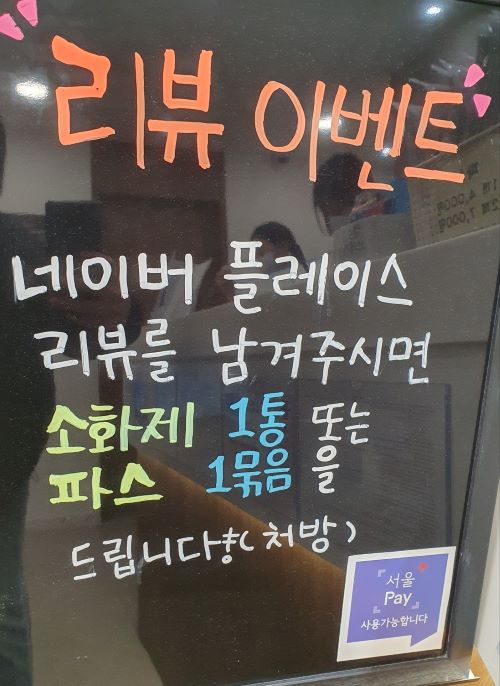 리뷰 이벤트
네이버 플레이스
리뷰를 남겨주시면
소화제 1통 또는
파스 1묶음 을
드립니다!(처방)
서울
Pay
사용가능합니다